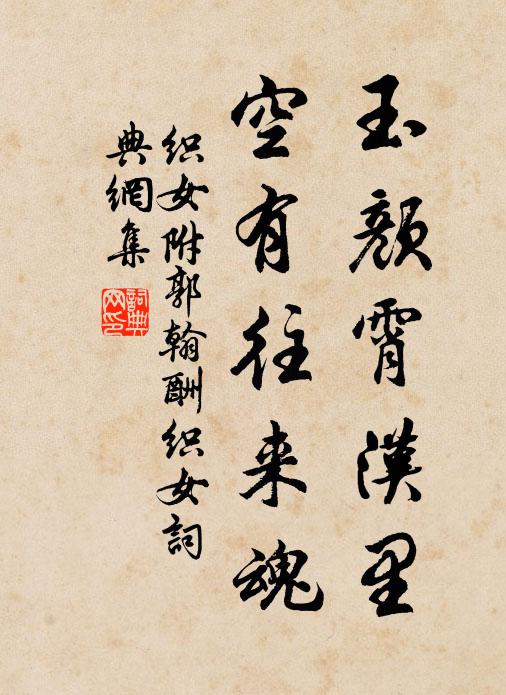 玉颜霄漢里
空有往来魂
织女附郭翰酬织女詞
典網集
詞典
网印